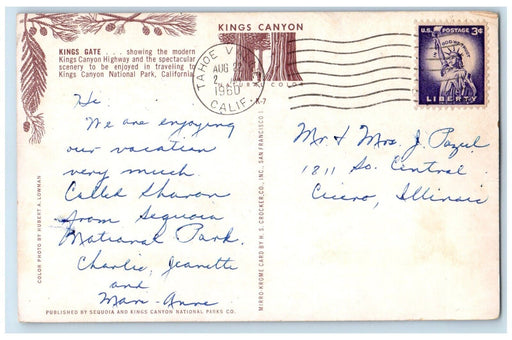 KINGS CANYON
KINGS GATE . . . showing the modern
Kings Canyon Highway and the spectacular
scenery to be enjoyed in traveling to
Kings Canyon National Park, California.
NATURAL COLOR
K-7
TAHOE V
AUG 22
2
1960
CALIF.
U.S. POSTAGE 3¢
IN GOD WE TRUST
LIBERTY
Hi,
We are enjoying
our vacation
very much
Called Sharon
from Sequoia
National Park.
Charlie, Jeanette
and
Mari-Anne
Mr & Mrs. J. Pazul
1811 So. Central
Cicero, Illinois
COLOR PHOTO BY HUBERT A. LOWMAN
MIRRO-KROME CARD BY H. S. CROCKER CO., INC., SAN FRANCISCO 1
PUBLISHED BY SEQUOIA AND KINGS CANYON NATIONAL PARKS CO.